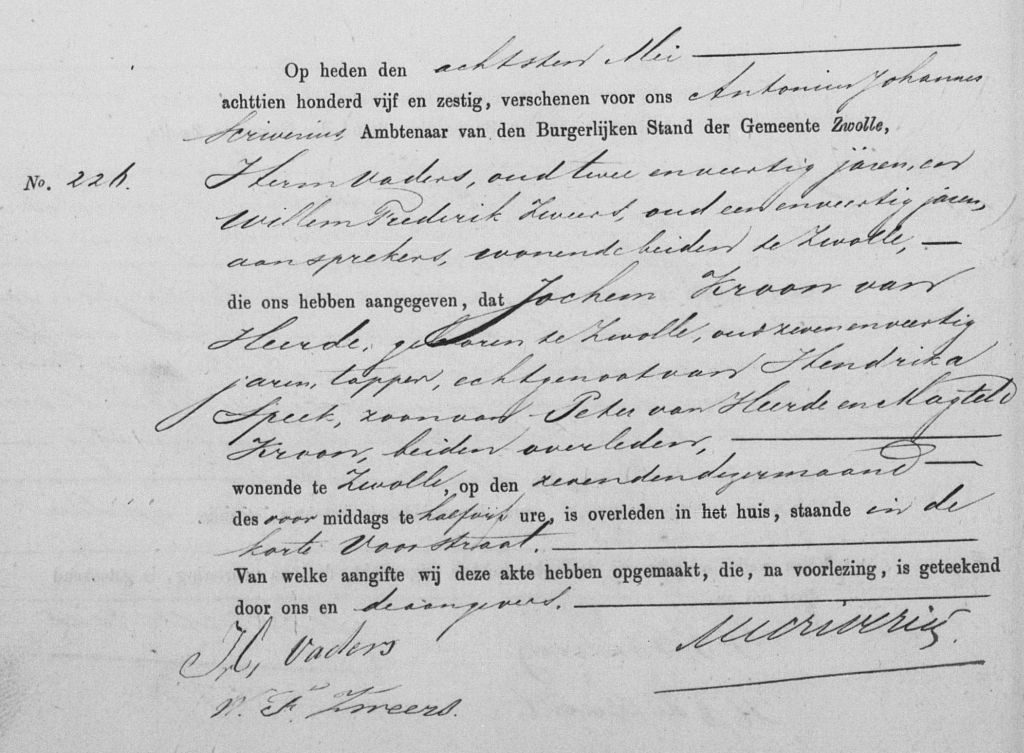 Op heden den achtsten Mei
achttien honderd vijf en zestig, verschenen voor ons Antonius Johannes
Scriverius, Ambtenaar van den Burgerlijken Stand der Gemeente Zwolle,
No. 226. Herm Vaders, oud twee en veertig jaren, en
Willem Frederik Zweers, oud een en veertig jaren,
aansprekers, wonende beiden te Zwolle,
die ons hebben aangegeven, dat Jochem Kroon van
Heerde, geboren te Zwolle, oud zeven en veertig
jaren, tapper, echtgenoot van Hendrika
Speek, zoon van Peter van Heerde en Magteld
Kroon, beiden overleden,
wonende te Zwolle, op den zevenden dezer maand
des voor middags te half vijf ure, is overleden in het huis, staande in de
korte Voorstraat.
Van welke aangifte wij deze akte hebben opgemaakt, die, na voorlezing, is geteekend
door ons en de aangevers.
H. Vaders
W. F. Zweers.